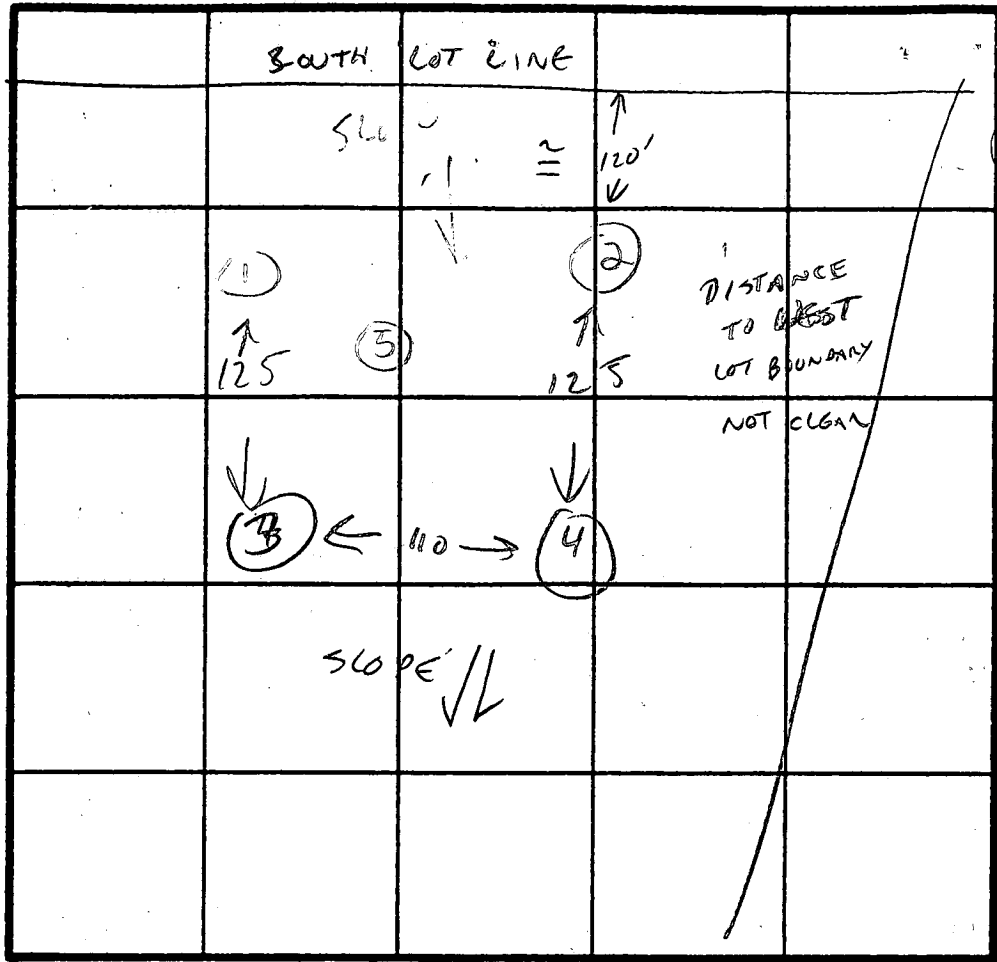 SOUTH LOT LINE
≅ 120'
1
2
DISTANCE
TO WEST
LOT BOUNDARY
NOT CLEAR
5
125
125
3 ← 110 → 4
SLOPE